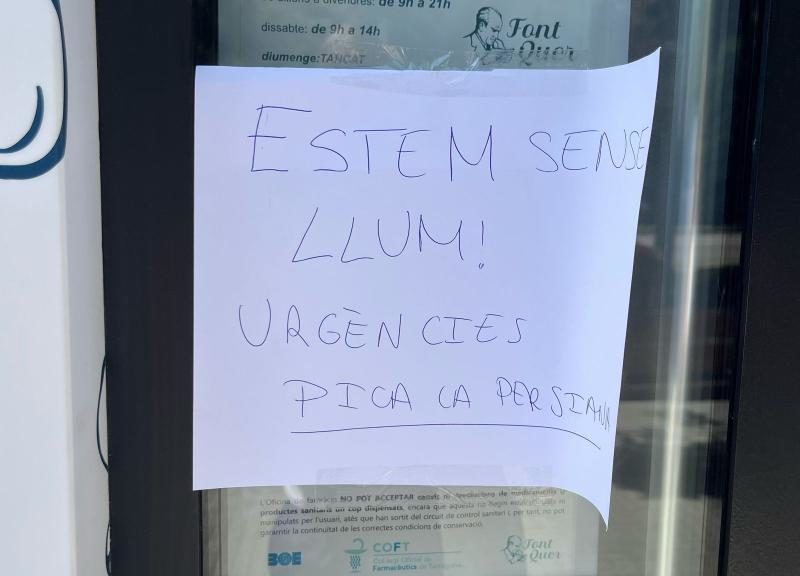 de 9h a 21h
dissabte: de 9h a 14h
diumenge:TANCAT
Font
Quer
ESTEM SENSE
LLUM!
URGÈNCIES
PICA LA PERSIANA
L'Oficina de farmàcia NO POT ACCEPTAR canvis ni devolucions de medicaments o
productes sanitaris un cop dispensats, encara que aquests no hagin estat oberts ni
manipulats per l'usuari, atès que han sortit del circuit de control sanitari i, per tant, no pot
garantir la continuïtat de les correctes condicions de conservació.
COFT
Col·legi Oficial de
Farmacèutics de Tarragona
Font
Quer